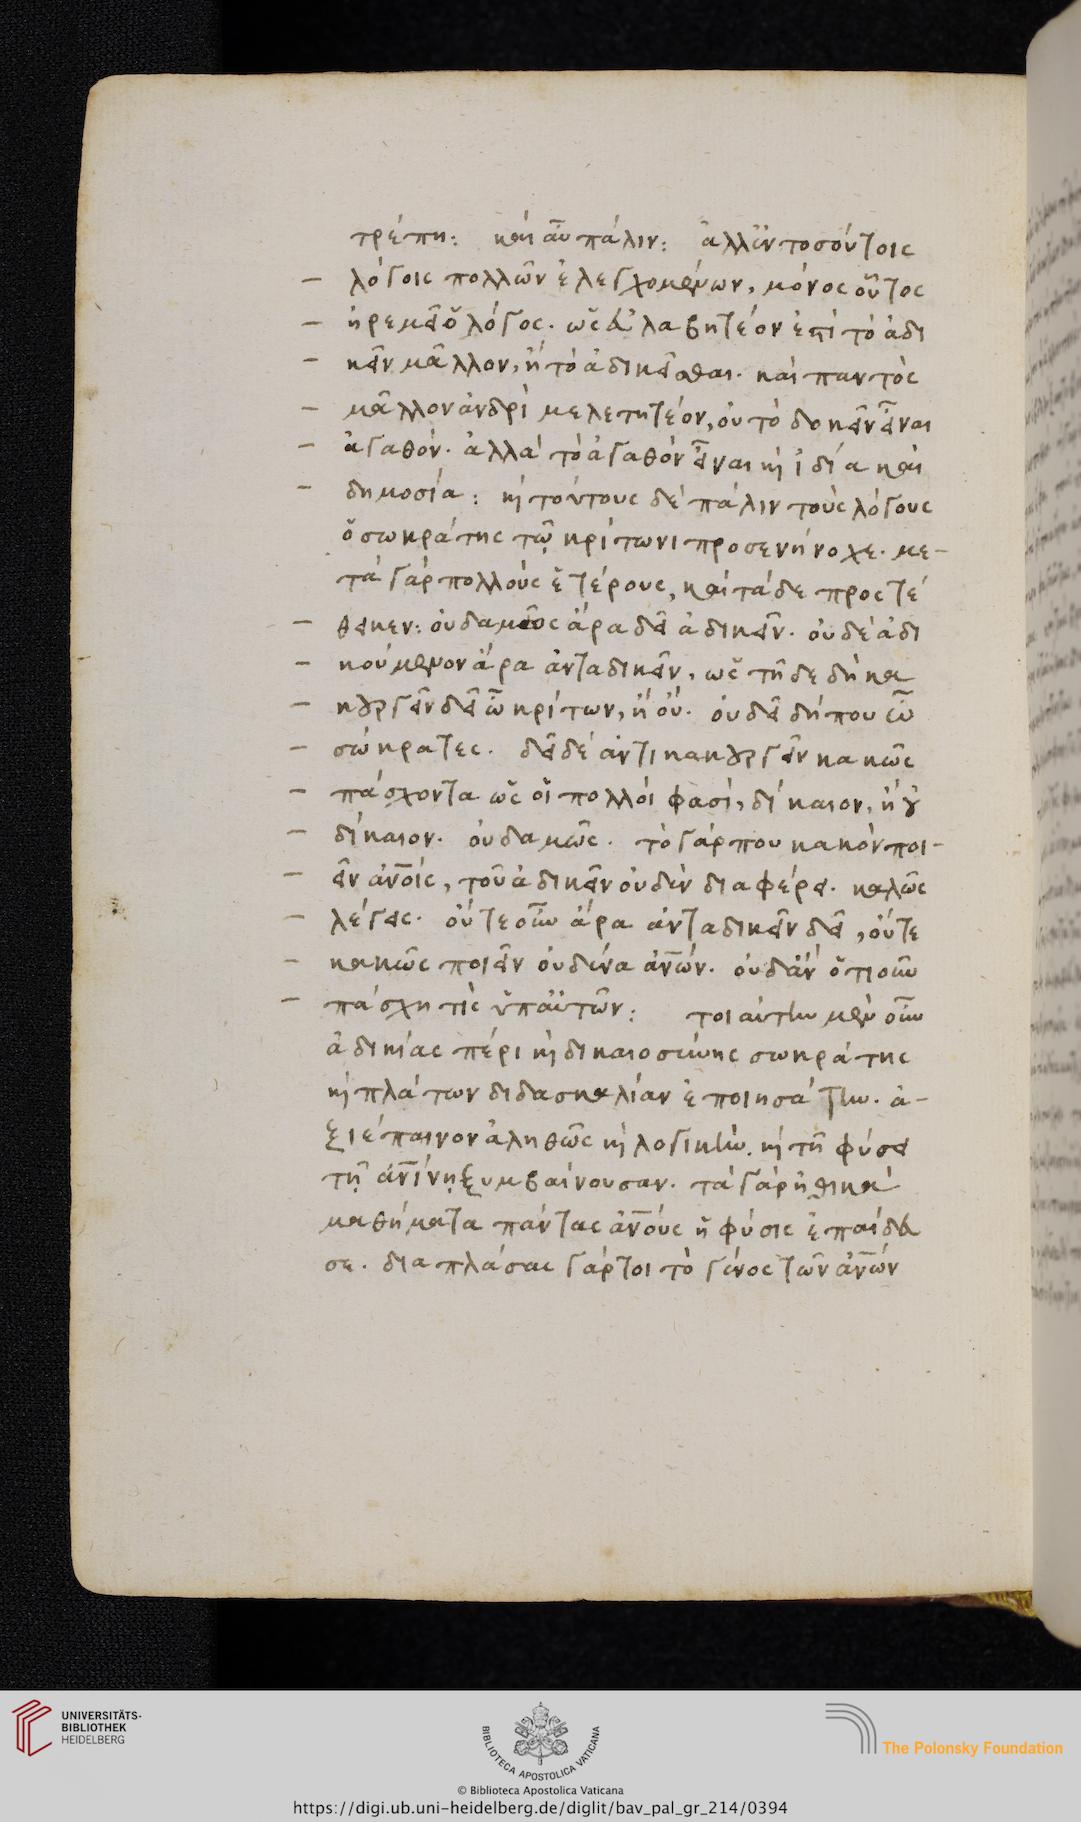 τρέπη: καὶ αὖ πάλιν: ἀλλ' ἐν τοσούτοις
– λόγοις πολλῶν ἐλεγχομένων, μόνος οὗτος
– ἠρεμεῖ ὁ λόγος. ὡς εὐλαβητέον ἐπὶ τὸ ἀδι
– κεῖν μᾶλλον, ἢ τὸ ἀδικεῖσθαι. καὶ παντὸς
– μᾶλλον ἀνδρὶ μελετητέον, οὐ τὸ δοκεῖν εἶναι
– ἀγαθόν. ἀλλὰ τὸ ἀγαθὸν εἶναι κ̀ ἰδία καὶ
– δημοσία: κ̀ τούτους δὲ πάλιν τοὺς λόγους
ὁ σωκράτης τῷ κρίτωνι προσενήνοχε. με-
τὰ γὰρ πολλοὺς ἑτέρους, καὶ τάδε προςτέ
– θεικεν: οὐδαμῶς ἄρα δεῖ ἀδικεῖν. οὐδὲ ἀδι
– κούμενον ἄρα ἀνταδικεῖν, ὡς τῆδε δὴ κα
– κουργεῖν δεῖ ὦ κρίτων, ἢ οὔ. οὐ δεῖ δήπου ὦ
– σώκρατες. δεῖ δὲ ἀντικακουργεῖν κακῶς
– πάσχοντα ὡς οἱ πολλοί φασὶ, δίκαιον, ἢ οὐ
– δίκαιον. οὐδαμῶς. τὸ γάρ που κακὸν ποι-
– εῖν ἀν̅οὶς, τοῦ ἀδικεῖν οὐδὲν διαφέρει. καλῶς
– λέγεις. οὔτε οὖν ἄρα ἀνταδικεῖν δεῖ, οὔτε
– κακῶς ποιεῖν οὐδένα ἀν̅ών. οὐδ' ἂν ὁτιοῦν
– πάσχη τὶς ὑπ' αὐτῶν: τοιαύτην μὲν οὖν
ἀδικίας πέρι κ̀ δικαιοσύνης σωκράτης
κ̀ πλάτων διδασκαλίαν ἐποιησάτην. ἀ-
ξιέπαινον ἀληθῶς κ̀ λογικὴν. κ̀ τῆ φύσει
τῇ ἀν̅ίνῃ ξυμβαίνουσαν. τὰ γὰρ ἠθικὰ
μαθήματα πάντας ἀν̅ους ἡ φύσις ἐπαίδευ
σε. διαπλάσας γάρ τοι τὸ γένος τῶν ἀν̅ών
UNIVERSITÄTS-
BIBLIOTHEK
HEIDELBERG
BIBLIOTECA APOSTOLICA VATICANA
The Polonsky Foundation
© Biblioteca Apostolica Vaticana
https://digi.ub.uni-heidelberg.de/diglit/bav_pal_gr_214/0394